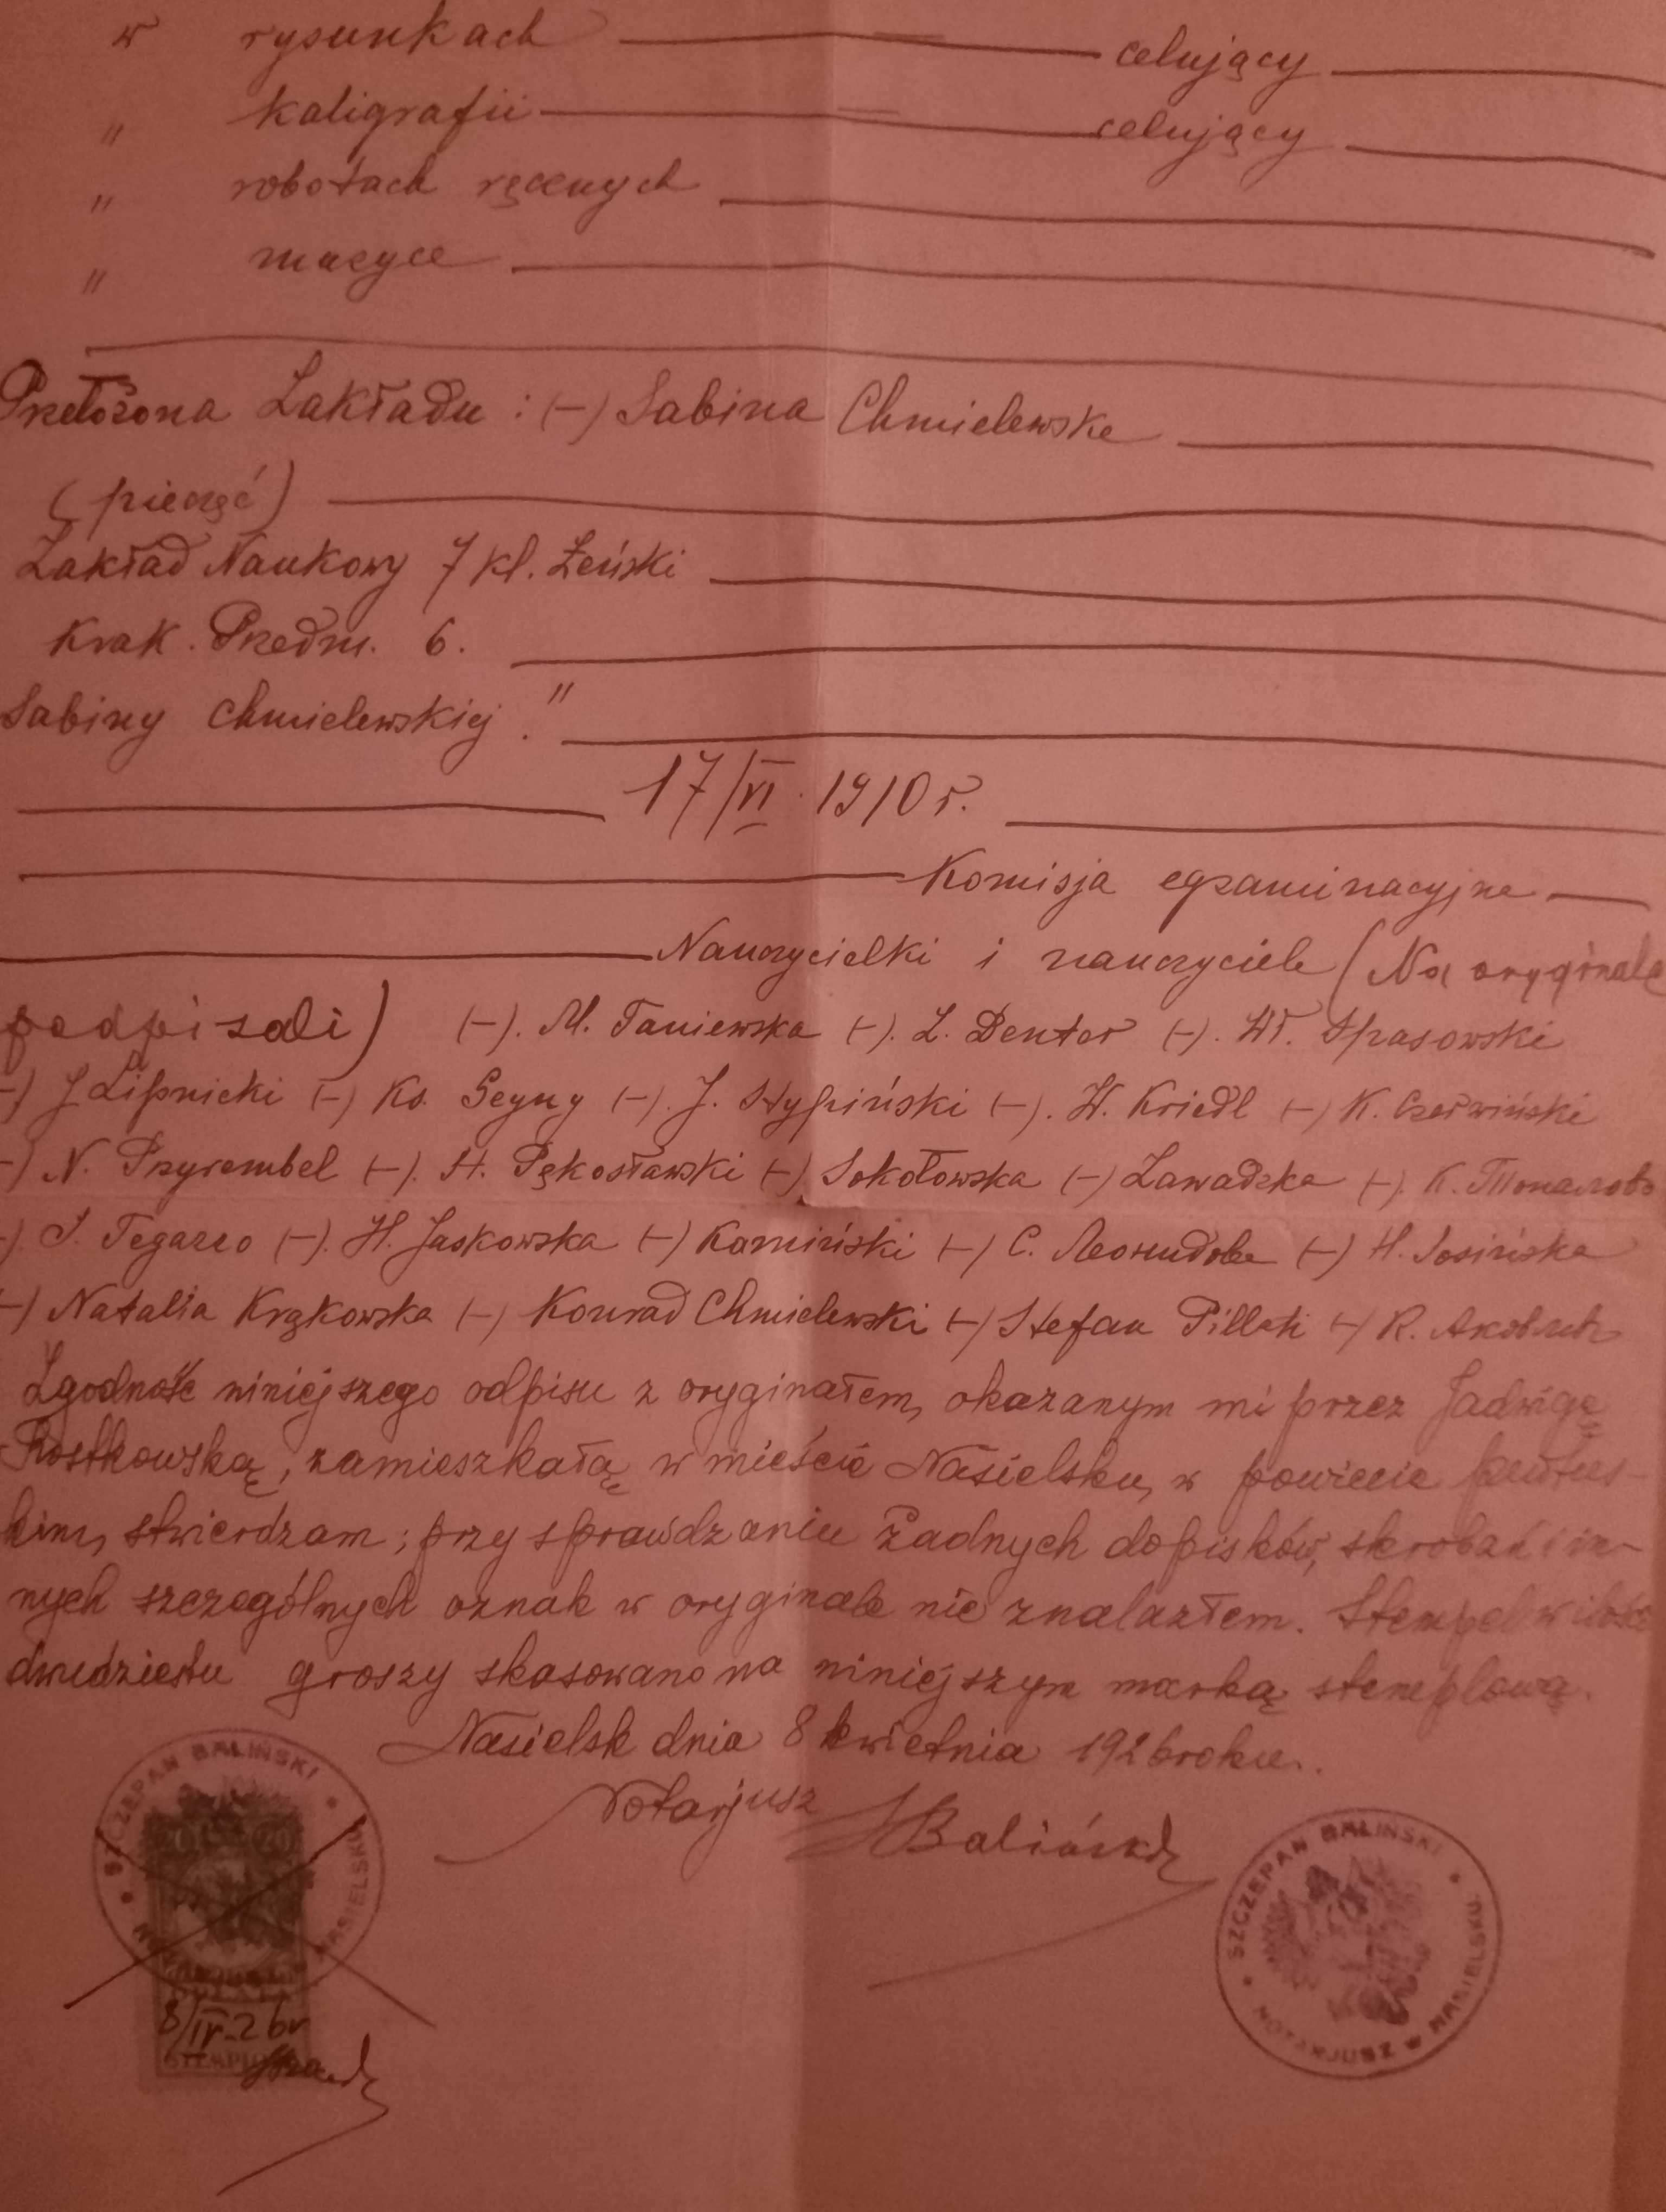 w rysunkach celujący
" kaligrafii celujący
" robotach ręcznych
" muzyce
Przełożona Zakładu : (-) Sabina Chmielewska
(pieczęć)
Zakład Naukowy 7 kl. Żeński
Krak. Przedm. 6.
Sabiny Chmielewskiej."
17/VI 1910 r.
Komisja egzaminacyjna
Nauczycielki i nauczyciele (Na oryginale
podpisali) (-). M. Taniewska (-). L. Denter (-). Wł. Spasowski
-) J Lipnicki (-) Ks. (-). J. Stypiński (-). W. Kriedl (-) K. Czerwiński
-) N. Przyrembel (-). St. Pękosławski (-) Sokołowska (-) Zawadzka (-). K.
-). (-). H. Jaskowska (-) Kamiński (-) С. Леонидова (-) H. Sosińska
-) Natalia Krąkowska (-) Konrad Chmielewski (-) Stefan (-) R.
Zgodność niniejszego odpisu z oryginałem, okazanym mi przez Jadwigę
Rostkowską, zamieszkałą w mieście Nasielsku, w powiecie pułtus-
kim, stwierdzam; przy sprawdzaniu żadnych dopisków, skrobań i in-
nych szczególnych oznak w oryginale nie znalazłem. Stempel w ilości
dwudziestu groszy skasowano na niniejszym marką stemplową.
Nasielsk dnia 8 kwietnia 1926 roku.
Notarjusz SBaliński
SZCZEPAN BALIŃSKI
NOTARJUSZ w NASIELSKU
20 20
8/IV-26r
SZCZEPAN BALIŃSKI
NOTARJUSZ w NASIELSKU